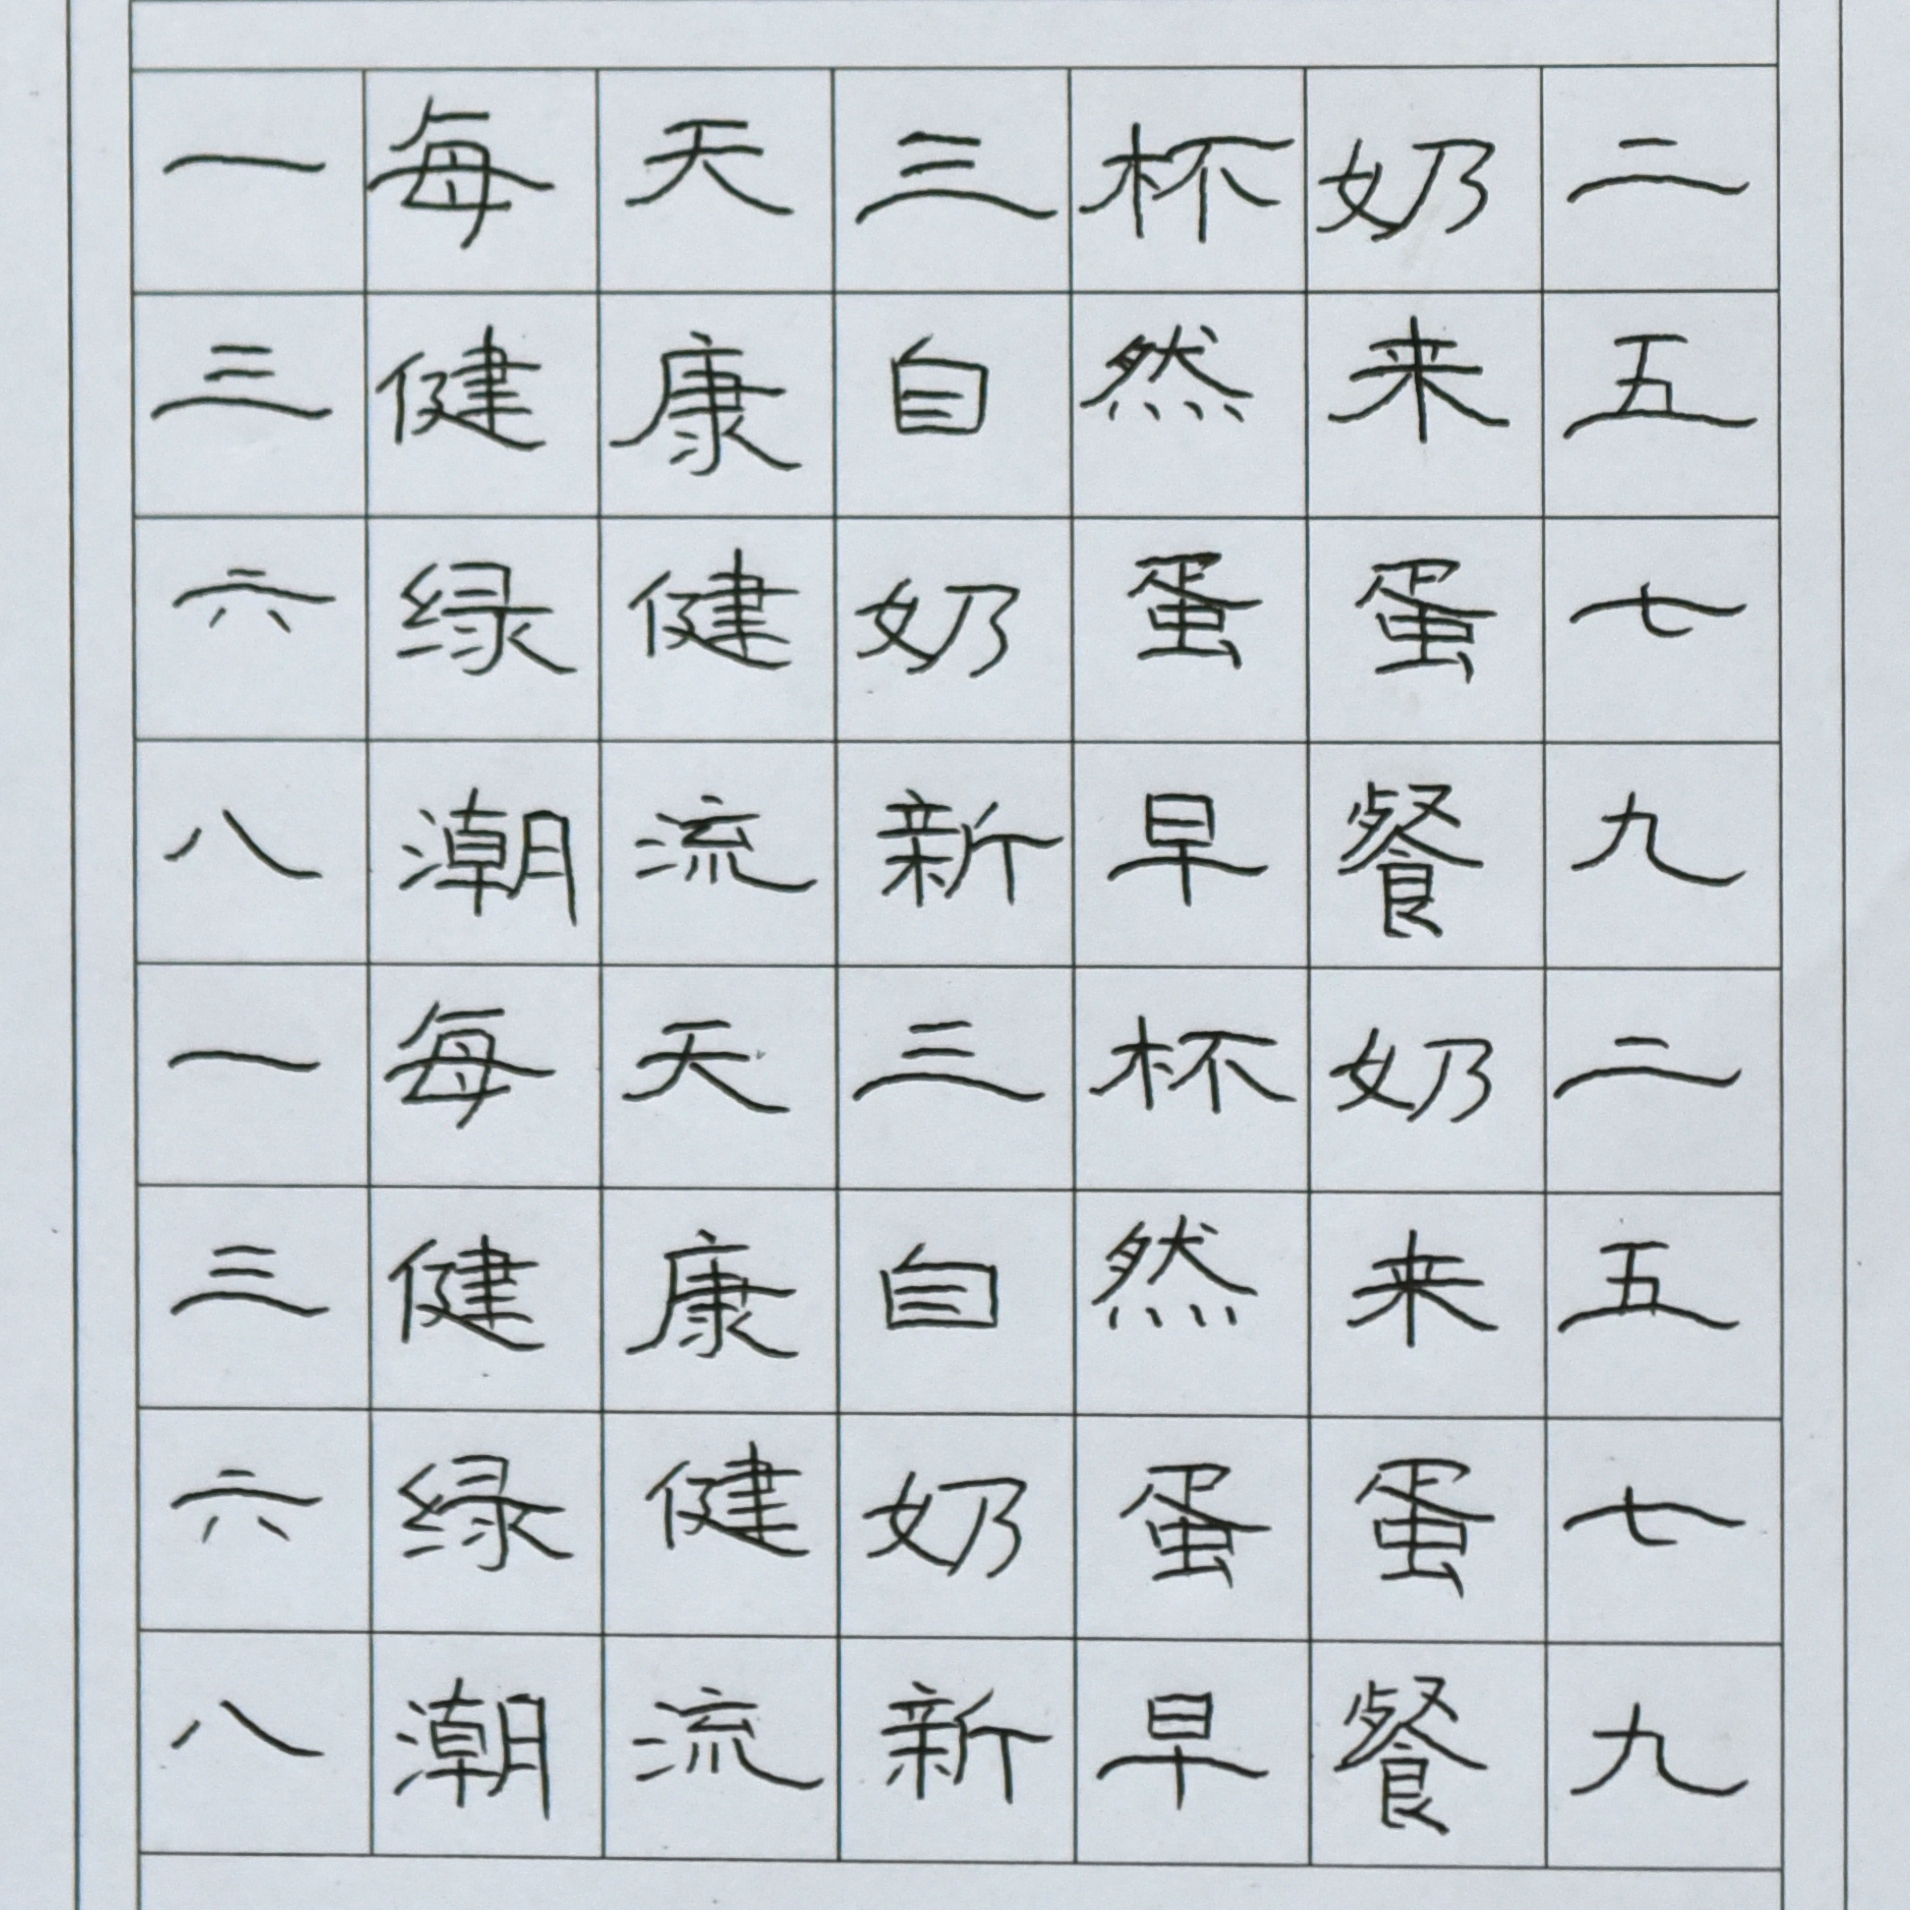 一每天三杯奶二
三健康自然来五
六绿健奶蛋蛋七
八潮流新早餐九
一每天三杯奶二
三健康自然来五
六绿健奶蛋蛋七
八潮流新早餐九